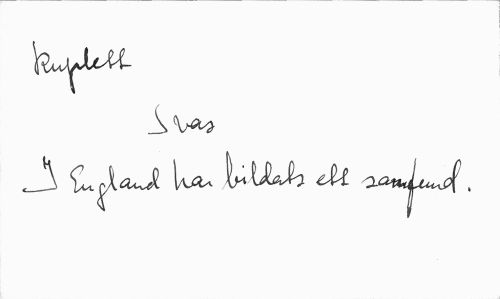 Kuplett
Svar
I England har bildats ett samfund.